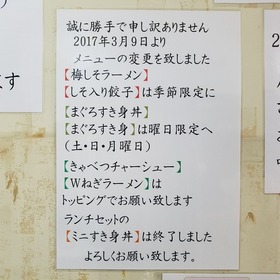 誠に勝手で申し訳ありません
2017年3月9日より
メニューの変更を致しました
【梅しそラーメン】
【しそ入り餃子】は季節限定に
【まぐろすき身丼】
【まぐろすき身】は曜日限定へ
(土・日・月曜日)
【きゃべつチャーシュー】
【Wねぎラーメン】は
トッピングでお願い致します
ランチセットの
【ミニすき身丼】は終了しました
よろしくお願い致します。
ます
2